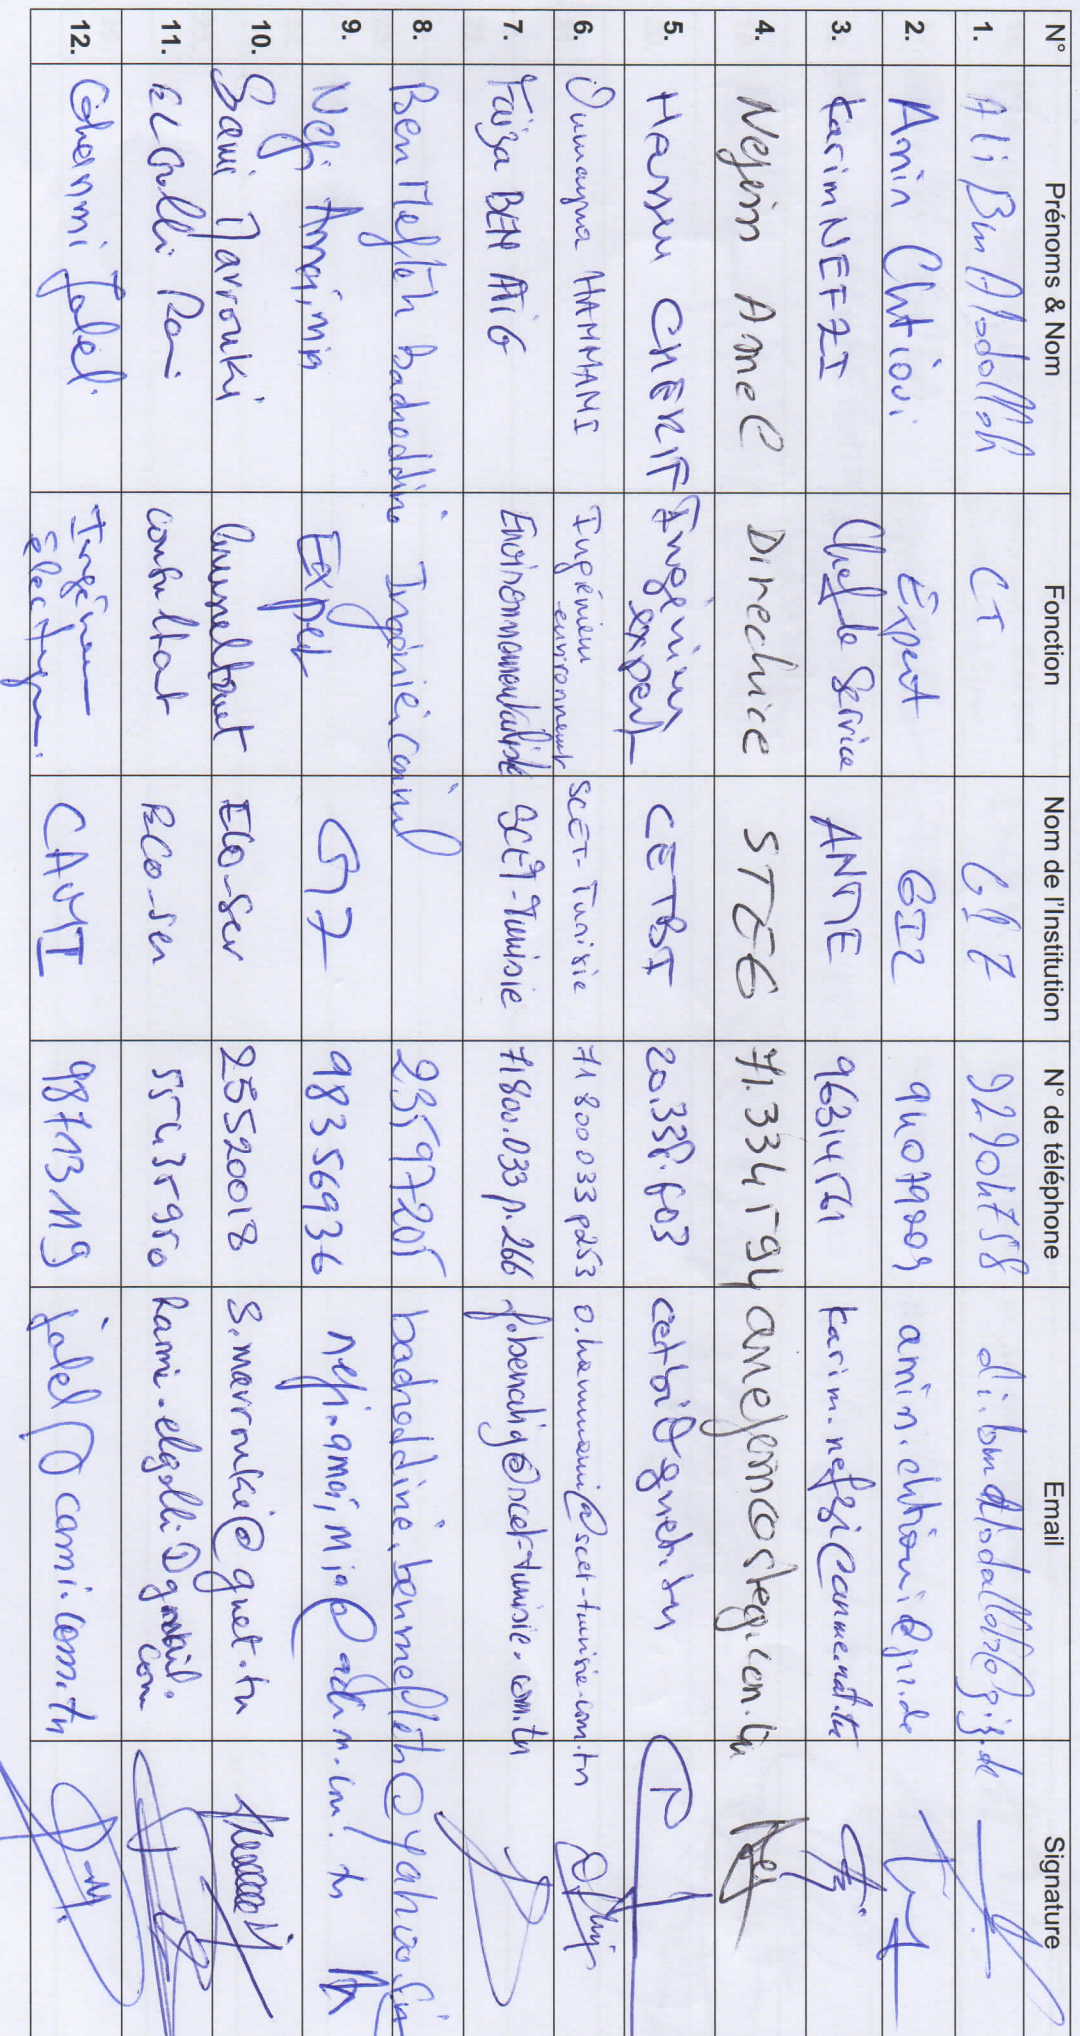 N° Prénoms & Nom Fonction Nom de l'Institution N° de téléphone Email Signature
1. Ali Ben Abdallah CT GIZ 92904758
2. Amin Chtioui Expert GIZ amin.chtioui@giz.de
3. Karim NEFZI Chef de Service ANME 96314561 karim.nefzi@anme.nat.tn
4. Nejem Amel Directrice STEG 71.334594 anejem@steg.com.tn
5. CHERIF Ingénieur expert CETBI cetbi@gnet.tn
6. Oumayma HAMMAMI Ingénieur environnement SCET-Tunisie 71 800 033 p253 o.hammami@scet-tunisie.com.tn
7. Faiza BEN ATIG Environnementaliste SCET-Tunisie 71800.033 p.266 f.benatig@scet-tunisie.com.tn
8. Ben Mefteh badreddine Ingénieur 23597205 badreddine.benmefteh@yahoo.fr
9. Nefi Expert 98356936
10. Sami Marrouki ECO-Ser 25520018 s.marrouki@gnet.tn
11. EL Golli consultant ECO-ser 55435950 Ramie.elgolli@gmail.com
12. Ghanmi Jalel Ingénieur électrique CAMI 98713119 jalel@cami.com.tn